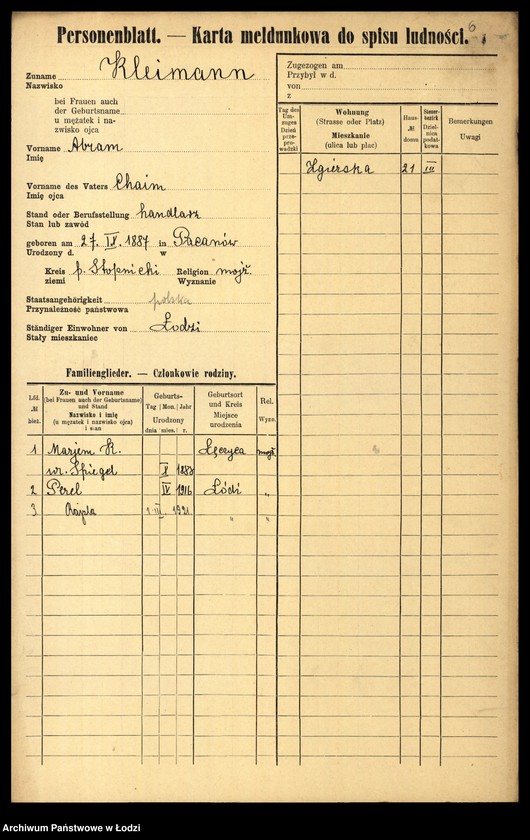 Personenblatt. — Karta meldunkowa do spisu ludności.
6
Zuname Kleimann
Nazwisko
bei Frauen auch
der Geburtsname
u mężatek i na-
zwisko ojca
Vorname Abram
Imię
Vorname des Vaters Chaim
Imię ojca
Stand oder Berufsstellung handlarz
Stan lub zawód
geboren am 27. IX. 1887 in Pacanów
Urodzony d. w
Kreis p. Stopnicki Religion mojż.
ziemi Wyznanie
Staatsangehörigkeit polska
Przynależność państwowa
Ständiger Einwohner von Łodzi
Stały mieszkaniec
Familienglieder. — Członkowie rodziny.
Lfd. № bież.
Zu- und Vorname
(bei Frauen auch der Geburtsname)
und Stand
Nazwisko i imię
(u mężatek i nazwisko ojca)
i stan
Geburts-
Tag Mon. Jahr
Urodzony
dnia mies. r.
Geburtsort
und Kreis
Miejsce
urodzenia
Rel.
Wyzn.
1 Marjem K. Łęczyca mojż.
ur. Spiegel X 1887
2 Perel IV 1916 Łódź "
3 Rajzla 1 III 1921 " "
Zugezogen am
Przybył w d.
von
z
Tag des
Um-
zuges
Dzień
prze-
prowadzki
Wohnung
(Strasse oder Platz)
Mieszkanie
(ulica lub plac)
Haus-
№
domu
Steuer-
bezirk
Dziel-
nica
podat-
kowa
Bemerkungen
Uwagi
Zgierska 21 III
Archiwum Państwowe w Łodzi